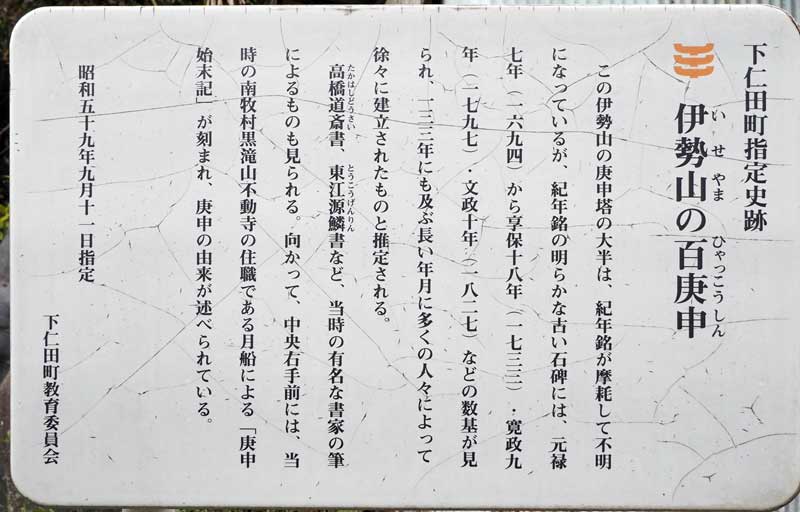 下仁田町指定史跡
伊勢山の百庚申
いせやま ひゃっこうしん
この伊勢山の庚申塔の大半は、紀年銘が摩耗して不明
になっているが、紀年銘の明らかな古い石碑には、元禄
七年（一六九四）から享保十八年（一七三三）・寛政九
年（一七九七）・文政十年（一八二七）などの数基が見
られ、一三三年にも及ぶ長い年月に多くの人々によって
徐々に建立されたものと推定される。
高橋道斎書、東江源鱗書など、当時の有名な書家の筆
たかはしどうさい とうこうげんりん
によるものも見られる。向かって、中央右手前には、当
時の南牧村黒滝山不動寺の住職である月船による「庚申
始末記」が刻まれ、庚申の由来が述べられている。
昭和五十九年九月十一日指定
下仁田町教育委員会